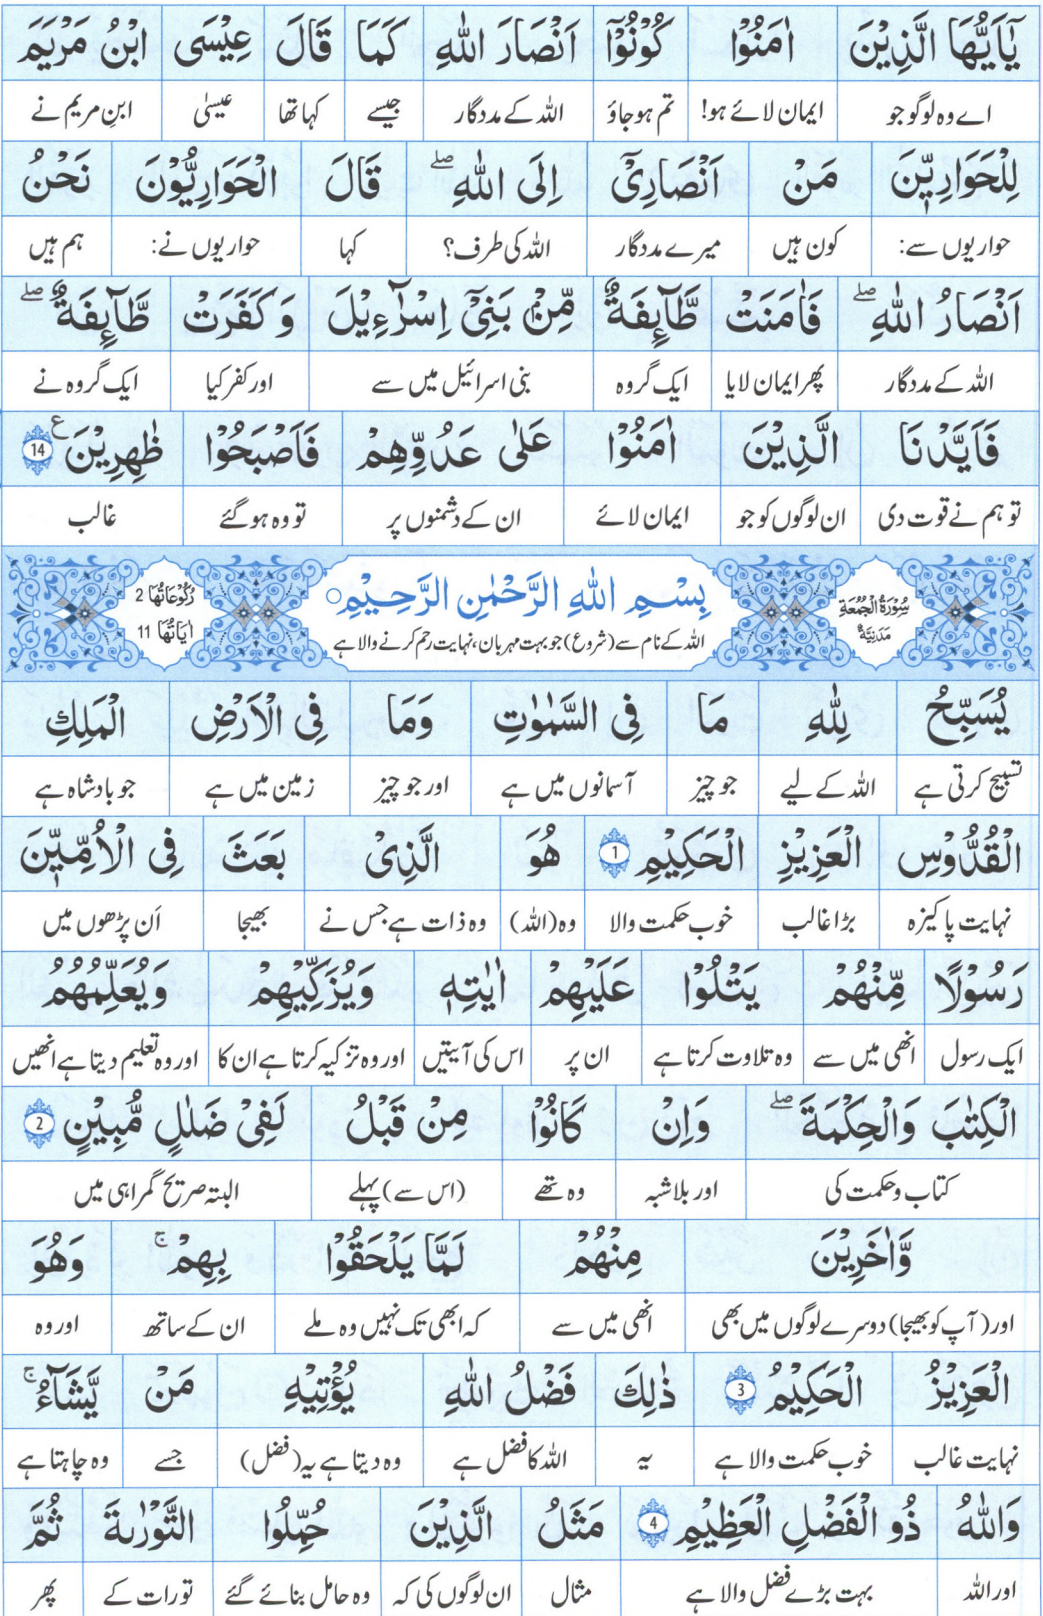 يٰٓاَيُّهَا الَّذِيْنَ اٰمَنُوْا كُوْنُوْٓا اَنْصَارَ اللّٰهِ كَمَا قَالَ عِيْسَى ابْنُ مَرْيَمَ
اے وہ لوگو جو ایمان لائے ہو! تم ہو جاؤ اللہ کے مددگار جیسے کہا تھا عیسیٰ ابنِ مریم نے
لِلْحَوَارِيّٖنَ مَنْ اَنْصَارِيْٓ اِلَى اللّٰهِ ۖ قَالَ الْحَوَارِيُّوْنَ نَحْنُ
حواریوں سے: کون ہیں میرے مددگار اللہ کی طرف؟ کہا حواریوں نے: ہم ہیں
اَنْصَارُ اللّٰهِ ۖ فَاٰمَنَتْ طَّآىِٕفَةٌ مِّنْۢ بَنِيْٓ اِسْرَآءِيْلَ وَكَفَرَتْ طَّآىِٕفَةٌ ۖ
اللہ کے مددگار پھر ایمان لایا ایک گروہ بنی اسرائیل میں سے اور کفر کیا ایک گروہ نے
فَاَيَّدْنَا الَّذِيْنَ اٰمَنُوْا عَلٰى عَدُوِّهِمْ فَاَصْبَحُوْا ظٰهِرِيْنَ ع 14
تو ہم نے قوت دی ان لوگوں کو جو ایمان لائے ان کے دشمنوں پر تو وہ ہو گئے غالب
سُوْرَةُ الْجُمُعَةِ مَدَنِيَّةٌ بِسْمِ اللّٰهِ الرَّحْمٰنِ الرَّحِيْمِ رُكُوْعَاتُهَا 2
اللہ کے نام سے (شروع) جو بہت مہربان، نہایت رحم کرنے والا ہے اٰيَاتُهَا 11
يُسَبِّحُ لِلّٰهِ مَا فِي السَّمٰوٰتِ وَمَا فِي الْاَرْضِ الْمَلِكِ
تسبیح کرتی ہے اللہ کے لیے جو چیز آسمانوں میں ہے اور جو چیز زمین میں ہے جو بادشاہ ہے
الْقُدُّوْسِ الْعَزِيْزِ الْحَكِيْمِ 1 هُوَ الَّذِيْ بَعَثَ فِي الْاُمِّيّٖنَ
نہایت پاکیزہ بڑا غالب خوب حکمت والا وہ (اللہ) وہ ذات ہے جس نے بھیجا اَن پڑھوں میں
رَسُوْلًا مِّنْهُمْ يَتْلُوْا عَلَيْهِمْ اٰيٰتِهٖ وَيُزَكِّيْهِمْ وَيُعَلِّمُهُمُ
ایک رسول انھی میں سے وہ تلاوت کرتا ہے ان پر اس کی آیتیں اور وہ تزکیہ کرتا ہے ان کا اور وہ تعلیم دیتا ہے انھیں
الْكِتٰبَ وَالْحِكْمَةَ ۖ وَاِنْ كَانُوْا مِنْ قَبْلُ لَفِيْ ضَلٰلٍ مُّبِيْنٍ 2
کتاب و حکمت کی اور بلاشبہ وہ تھے (اس سے) پہلے البتہ صریح گمراہی میں
وَّاٰخَرِيْنَ مِنْهُمْ لَمَّا يَلْحَقُوْا بِهِمْ ۚ وَهُوَ
اور (آپ کو بھیجا) دوسرے لوگوں میں بھی انھی میں سے کہ ابھی تک نہیں وہ ملے ان کے ساتھ اور وہ
الْعَزِيْزُ الْحَكِيْمُ 3 ذٰلِكَ فَضْلُ اللّٰهِ يُؤْتِيْهِ مَنْ يَّشَآءُ ۚ
نہایت غالب خوب حکمت والا ہے یہ اللہ کا فضل ہے وہ دیتا ہے یہ (فضل) جسے وہ چاہتا ہے
وَاللّٰهُ ذُو الْفَضْلِ الْعَظِيْمِ 4 مَثَلُ الَّذِيْنَ حُمِّلُوا التَّوْرٰىةَ ثُمَّ
اور اللہ بہت بڑے فضل والا ہے مثال ان لوگوں کی کہ وہ حامل بنائے گئے تورات کے پھر